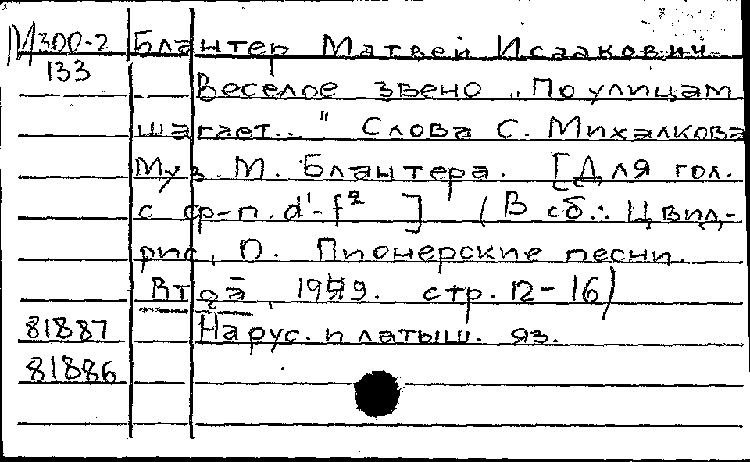 М300-2 Блантер Матвей Исаакович
133
Веселое звено „По улицам
шагает..." Слова С. Михалкова
Муз. М. Блантера. [Для гол.
с ф-п. d'-f² ] (В сб.: Цвид-
рис, О. Пионерские песни.
стр. 12-16)
81887 На рус. и латыш. яз.
81886